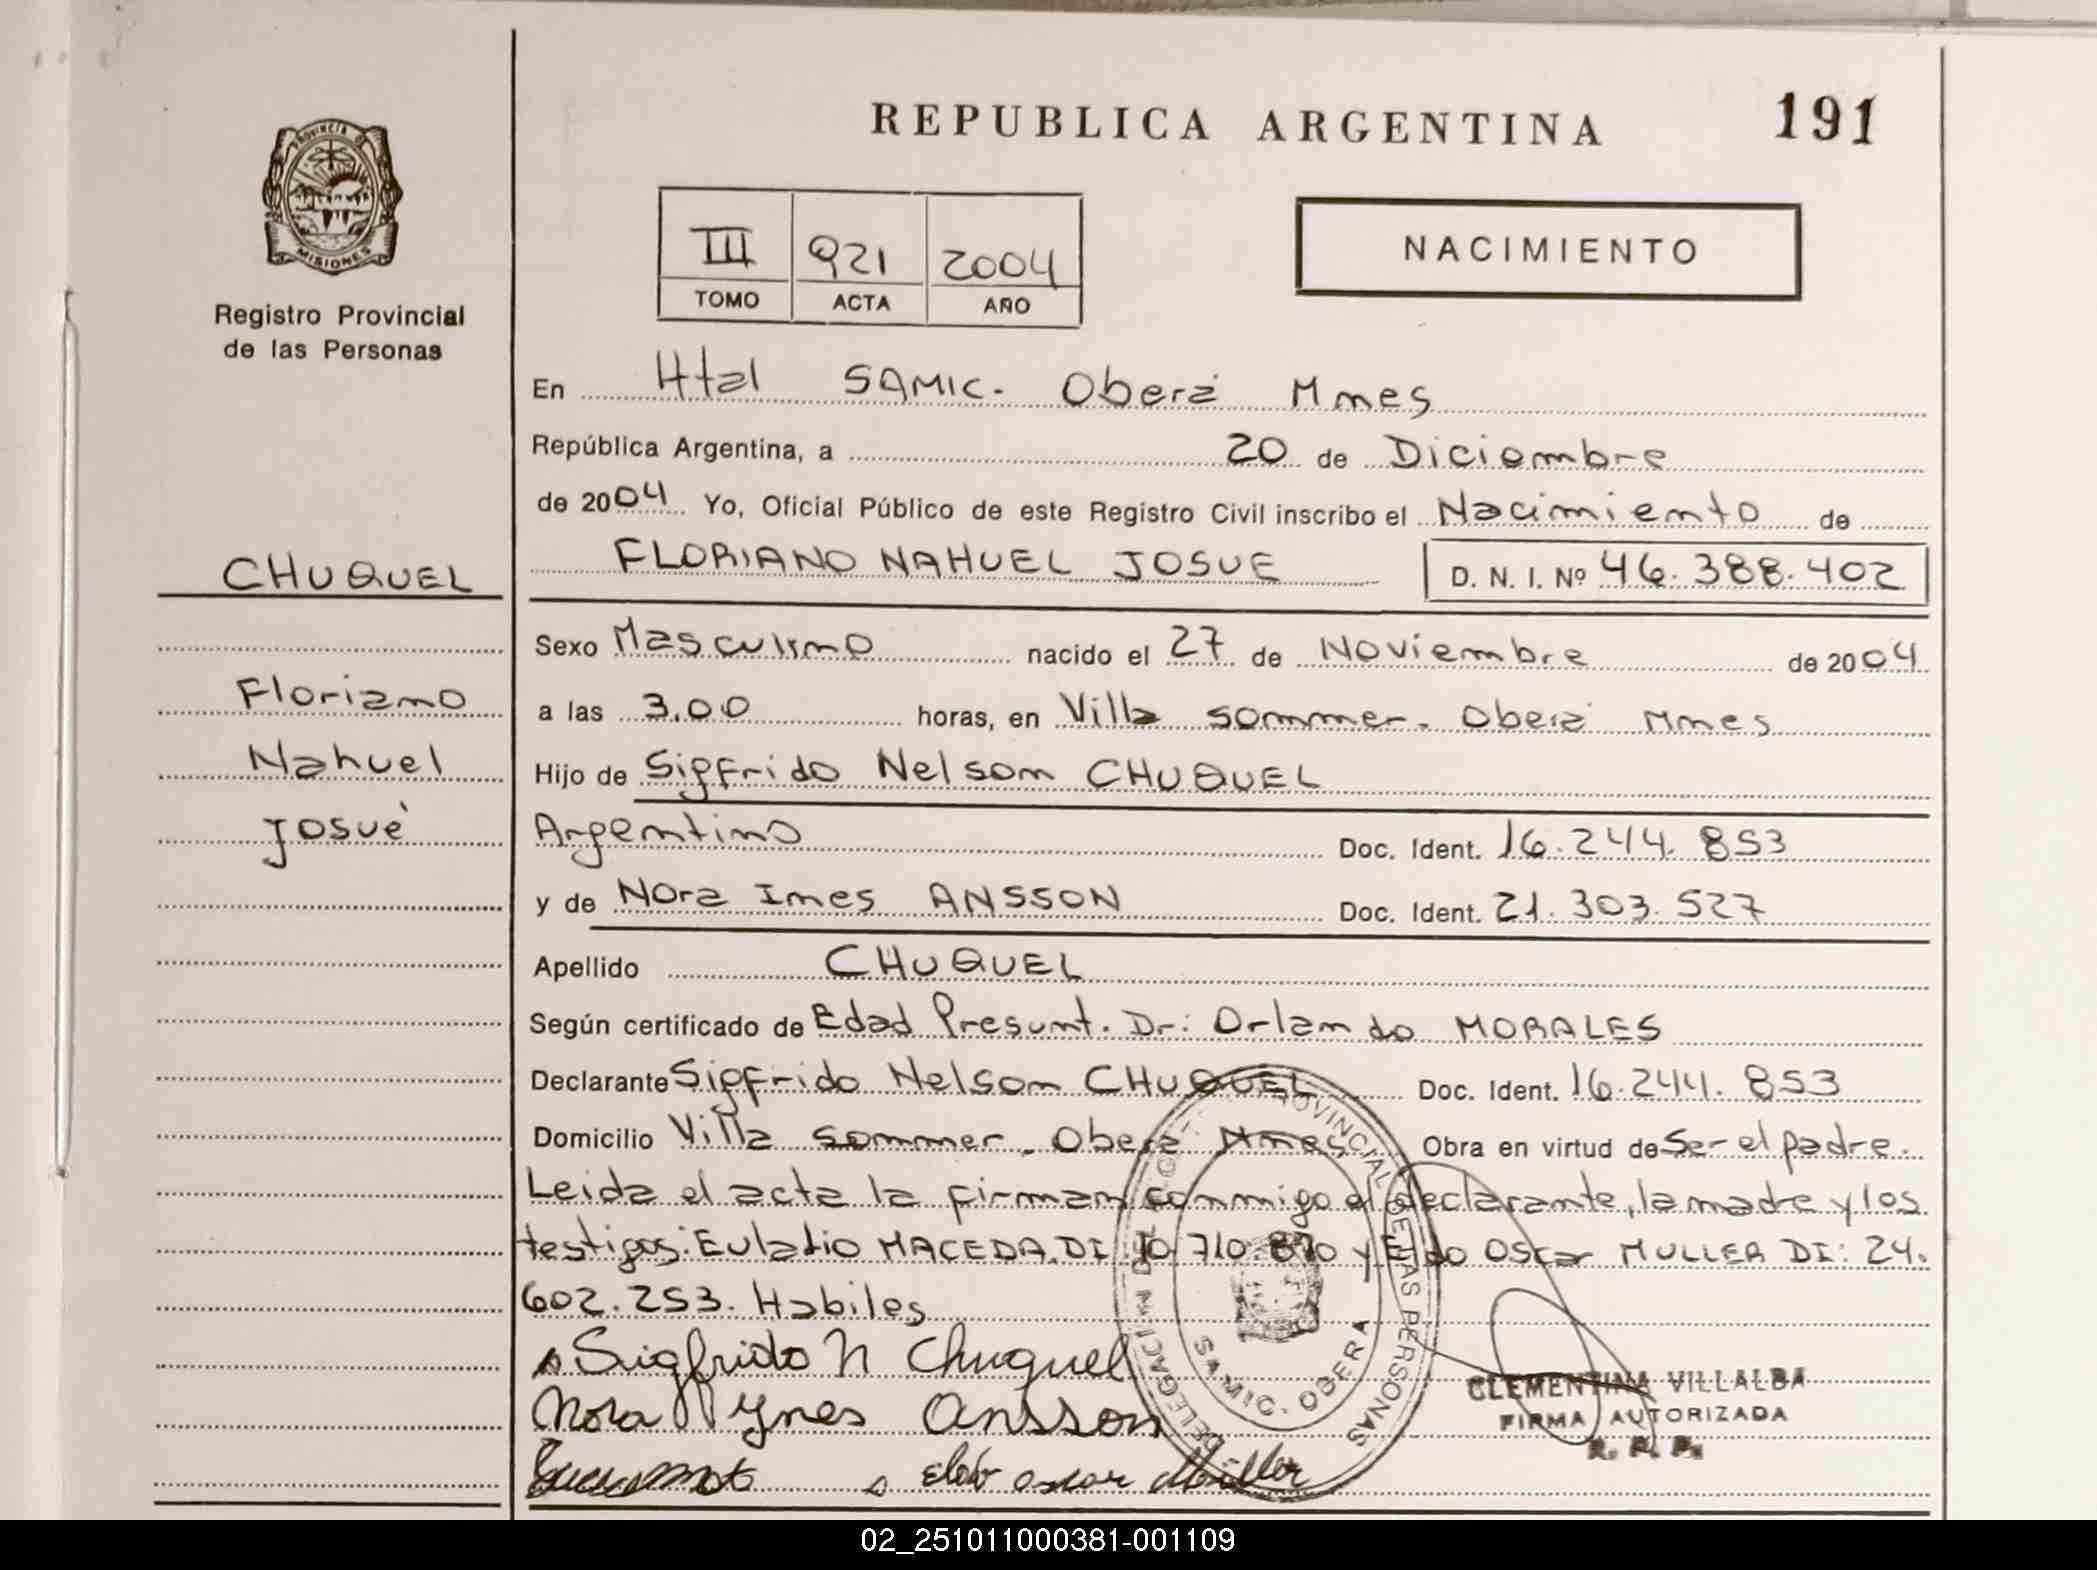 REPUBLICA ARGENTINA
191
PROVINCIA DE
MISIONES
Registro Provincial
de las Personas
III 921 2004
TOMO ACTA AÑO
NACIMIENTO
En Htal SAMIC. Oberá Mnes
República Argentina, a 20 de Diciembre
de 2004 Yo, Oficial Público de este Registro Civil inscribo el Nacimiento de
FLORIANO NAHUEL JOSUE D. N. I. Nº 46.388.402
CHUQUEL
Floriano
Nahuel
Josué
Sexo Masculino nacido el 27 de Noviembre de 2004
a las 3.00 horas, en Villa Sommer. Oberá Mnes
Hijo de Sigfrido Nelson CHUQUEL
Argentino Doc. Ident. 16.244.853
y de Nora Ines ANSSON Doc. Ident. 21.303.527
Apellido CHUQUEL
Según certificado de Edad Presunt. Dr: Orlando MORALES
Declarante Sigfrido Nelson CHUQUEL Doc. Ident. 16.244.853
Domicilio Villa Sommer. Oberá Mnes Obra en virtud de Ser el padre.
Leida el acta la firman conmigo el declarante, la madre y los
testigos: Eulalio MACEDA. DI: 10.710.870 y Eldo Oscar MULLER DI: 24.
602.253. Habiles
Sigfrido N Chuquel
Nora Ynes Ansson
Eldo oscar Müller
DELEGACION DEL REGIST. PROVINCIAL DE LAS PERSONAS
SAMIC. OBERA
CLEMENTINA VILLALBA
FIRMA AUTORIZADA
R. P. P.
02_251011000381-001109